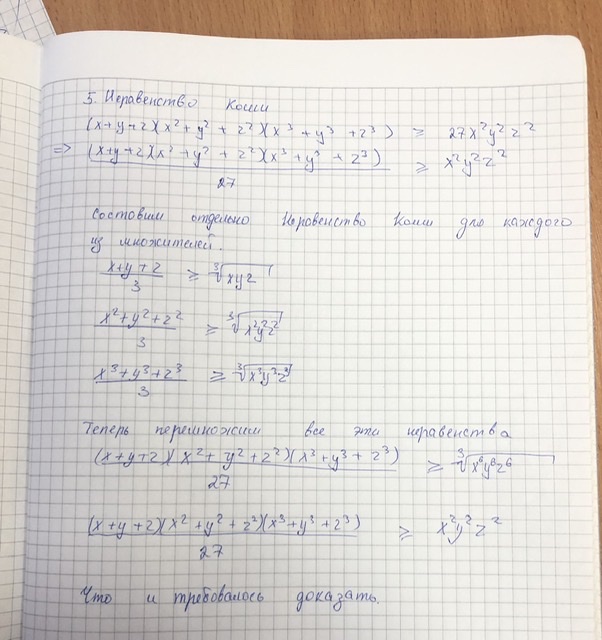 5. Неравенство Коши
(x+y+z)(x²+y²+z²)(x³+y³+z³) ≥ 27x²y²z²
=> (x+y+z)(x²+y²+z²)(x³+y³+z³)/27 ≥ x²y²z²
Составим отдельно Неравенство Коши для каждого
из множителей.
(x+y+z)/3 ≥ ∛(xyz)
(x²+y²+z²)/3 ≥ ∛(x²y²z²)
(x³+y³+z³)/3 ≥ ∛(x³y³z³)
Теперь перемножим все эти неравенства
(x+y+z)(x²+y²+z²)(x³+y³+z³)/27 ≥ ∛(x⁶y⁶z⁶)
(x+y+z)(x²+y²+z²)(x³+y³+z³)/27 ≥ x²y²z²
Что и требовалось доказать.